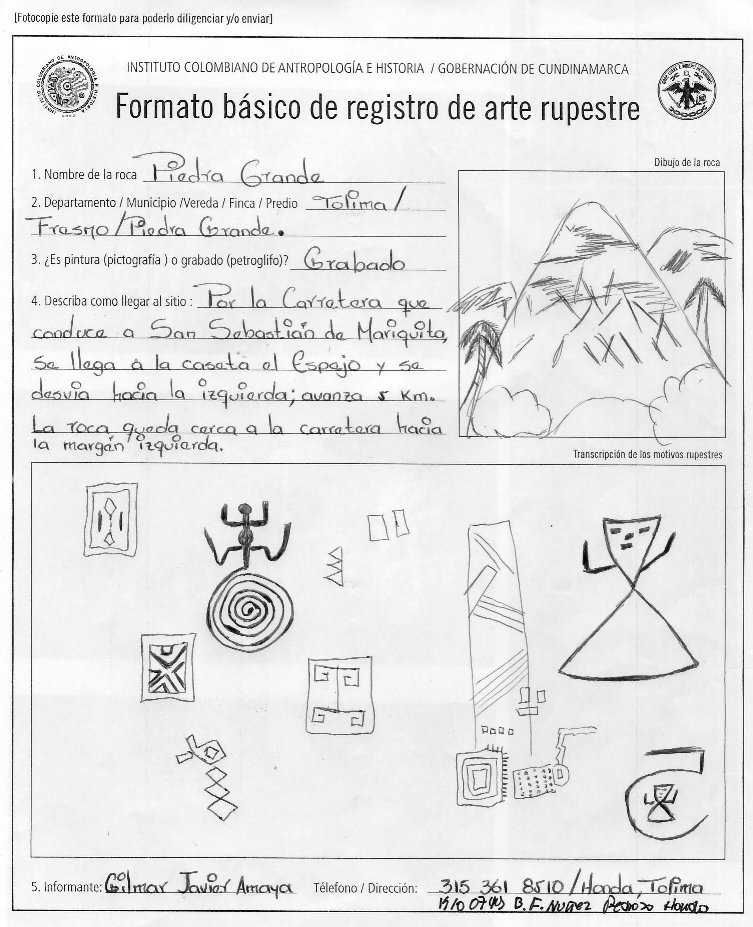 [Fotocopie este formato para poderlo diligenciar y/o enviar]
INSTITUTO COLOMBIANO DE ANTROPOLOGÍA E HISTORIA / GOBERNACIÓN DE CUNDINAMARCA
Formato básico de registro de arte rupestre
Dibujo de la roca
1. Nombre de la roca Piedra Grande
2. Departamento / Municipio /Vereda / Finca / Predio Tolima/
Fresno/Piedra Grande.
3. ¿Es pintura (pictografía ) o grabado (petroglifo)? Grabado
4. Describa como llegar al sitio : Por la Carretera que
conduce a San Sebastián de Mariquita,
se llega a la caseta el Espejo y se
desvia hacia la izquierda; avanza 5 Km.
La roca queda cerca a la carretera hacia
la margén izquierda.
Transcripción de los motivos rupestres
5. Informante: Gilmar Javier Amaya Télefono / Dirección: 315 361 8510/Honda, Tolima
B. F. Nuñez Pedrozo Honda